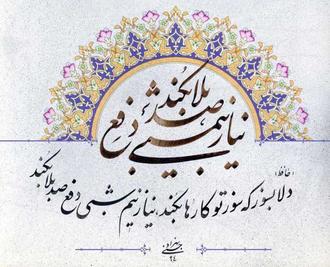 نیاز نیمشبی دفع
صد بلا بکند
(حافظ)
دلا بسوز که سوز تو کارها بکند، نیاز نیم شبی دفع صد بلا بکند
۹۴